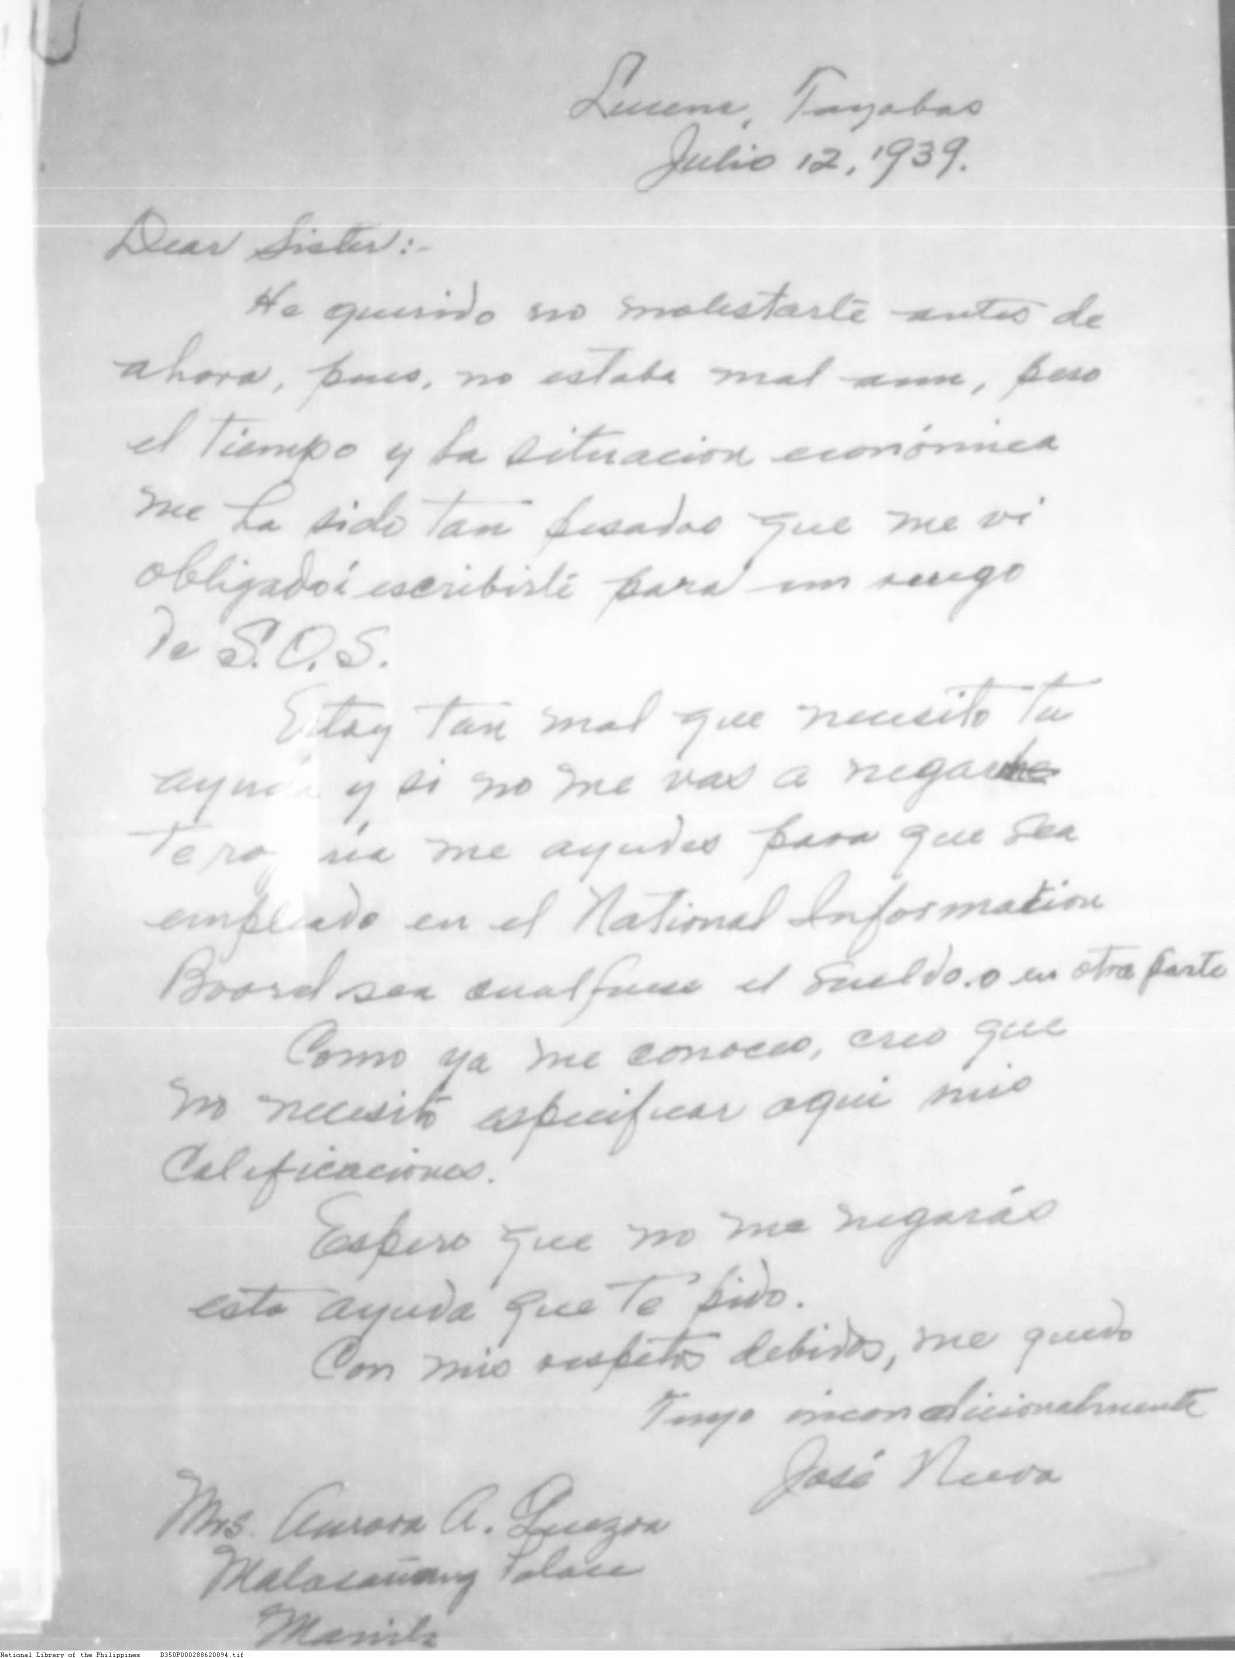 Lucena, Tayabas
Julio 12, 1939.
Dear Sister:-
He querido no molestarte antes de
ahora, pues, no estaba mal aun, pero
el tiempo y la situacion económica
me ha sido tan pesados que me vi
obligado á escribirte para un ruego
de S.O.S.
Estoy tan mal que necesito tu
ayuda y si no me vas a negar
te rogaría me ayudes para que sea
empleado en el National Information
Board sea cual fuese el sueldo. o en otra parte
Como ya me conoces, creo que
no necesito especificar aqui mis
Calificaciones.
Espero que no me negarás
esta ayuda que te pido.
Con mis respetos debidos, me quedo
Tuyo incondicionalmente
José Nueva
Mrs. Aurora A. Quezon
Malacañang Palace
Manila
National Library of the Philippines B350P000288620894.tif